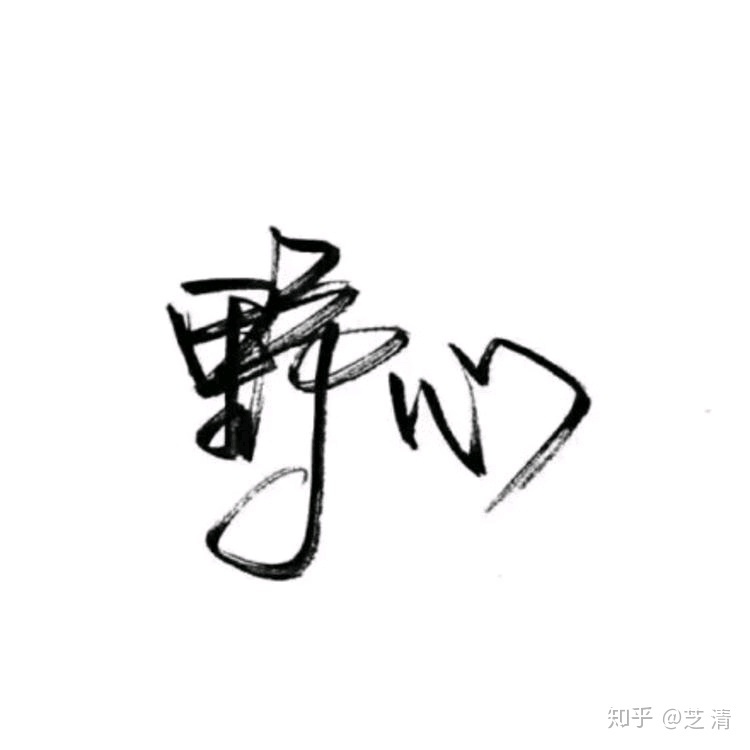 野心
知乎 @芝清